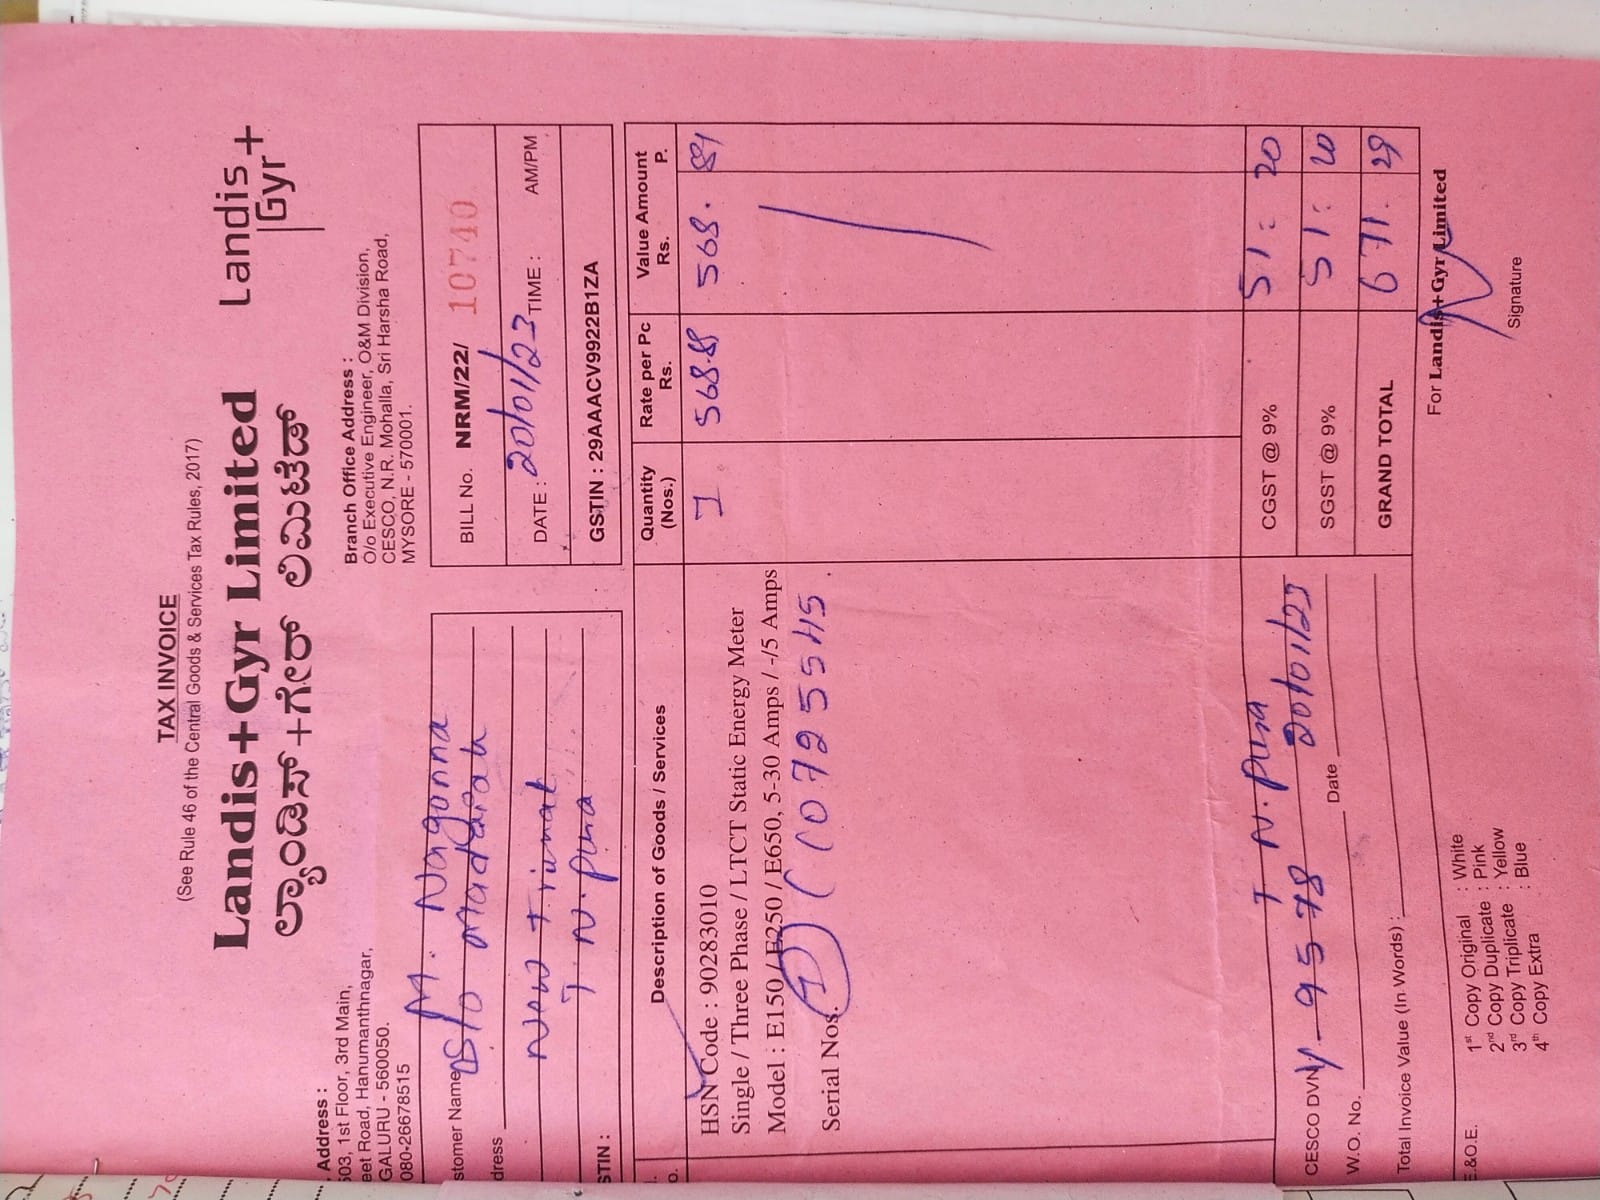 TAX INVOICE
(See Rule 46 of the Central Goods & Services Tax Rules, 2017)
Landis+Gyr Limited
Landis+
Gyr
ಲ್ಯಾಂಡಿಸ್+ಗೇರ್ ಲಿಮಿಟೆಡ್
Address :
503, 1st Floor, 3rd Main,
eet Road, Hanumanthnagar,
GALURU - 560050.
080-26678515
Branch Office Address :
O/o Executive Engineer, O&M Division,
CESCO, N.R. Mohalla, Sri Harsha Road,
MYSORE - 570001.
stomer Name M. Nagonna
S/o madaiah
dress
New Tirumal
T. N. pura
STIN :
BILL No. NRM/22/ 10740
DATE : 20/01/23 TIME : AM/PM
GSTIN : 29AAACV9922B1ZA
Description of Goods / Services
Quantity (Nos.)
Rate per Pc Rs.
Value Amount Rs. P.
HSN Code : 90283010
1 568.8 568. 89
Single / Three Phase / LTCT Static Energy Meter
Model : E150 / E250 / E650, 5-30 Amps / -/5 Amps
Serial Nos. 1 (0725545
T N. pura
CESCO DVN. Y-9578 20/01/23
W.O. No. Date
Total Invoice Value (In Words) :
CGST @ 9% 51: 20
SGST @ 9% 51: 20
GRAND TOTAL 671. 29
For Landis+Gyr Limited
Signature
E.&O.E.
1st Copy Original : White
2nd Copy Duplicate : Pink
3rd Copy Triplicate : Yellow
4th Copy Extra : Blue